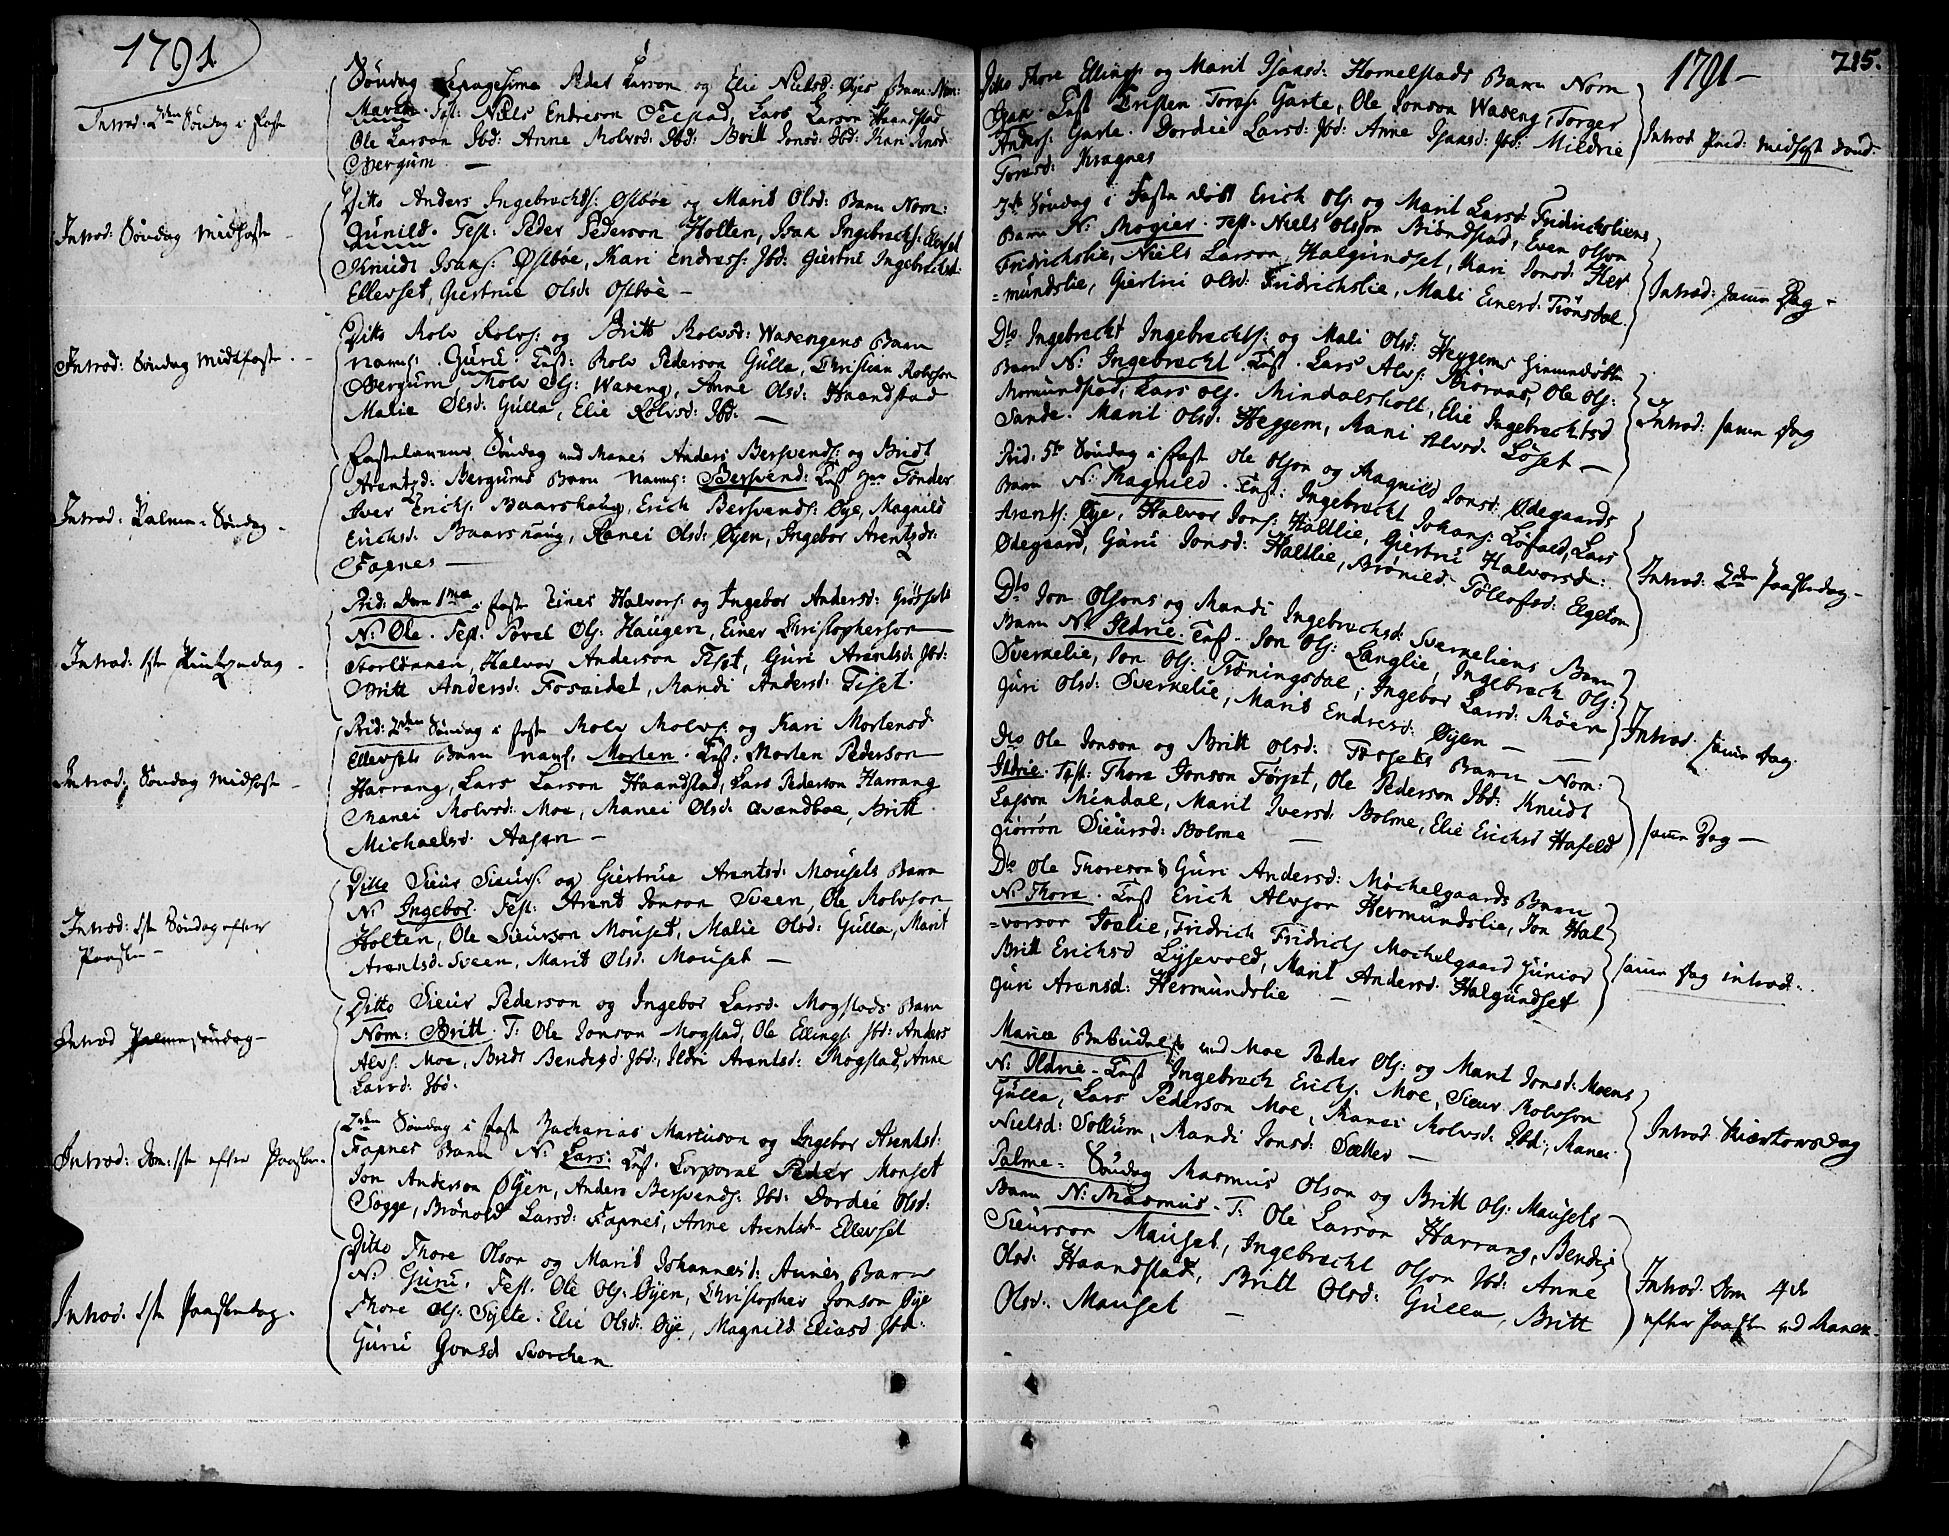 1791
Introd: 2den Søndag i Faste
Søndag Septuagesima Peder Larson og Elie Nielsd: Øyes Barn: Nom:
Maren. Test: Niels Endreson Teelstad, Lars Larson Haandstad
Ole Larson Ibd: Anne Rolvsd: Ibd: Britt Jonsd: Ibd: Kari Knsd
Bergum
Introd: Søndag Midfaste
Ditto Anders Ingebrechts: Østbøe og Marit Olsd: Barn Nom:
Gunild. Test: Peder Pederson Holten, Isaa Ingebrechts: Ellevset
Knudt Isaas: Østbøe, Kari Endress: Ibd: Giertru Ingebrechtsd:
Ellevset, Giertrue Olsd: Østbøe
Introd: Søndag Midtfaste
Ditto Rolv Rolvs: og Britt Rolvsd: Wasengens Barn
navns: Guru. Test: Rolv Pederson Gulla, Christian Rolvson
Bergum, Rolv Ols: Waseng, Anne Olsd: Haandstad
Malie Olsd: Gulla, Elie Rolvsd: Ibd:
Introd: Palme-Søndag
Fastelavens Søndag ved Ranes Anders Bersvends: og Bridt
Arentsd: Bergums Barn navns: Bersvend: Test Hr Tønder
Iver Erichs: Baarshaug, Erich Bersvends: Øye, Magnild
Erichsd: Baarshaug, Ranei Olsd: Øyen, Ingebor Arentsdr:
Fapnes
Introd: 1ste Pintzedag
Rid: Dom 1ma i faste Einer Halvors: og Ingebor Andersd: Giørsets
N: Ole. Test: Povel Ols: Haugen, Einer Christopherson
Storlannen, Halvor Anderson Tiset, Guri Arentsd: Ibd:
Britt Andersd: Fosaidet, Randi Andersd: Tiset.
Introd: Søndag Midfaste
Rid: 2den Søndag i faste Rolv Rolvs: og Kari Mortensd:
Ellevsets Barn navs. Morten. Test: Morten Pederson
Harrang, Lars Larson Haandstad, Lars Pederson Harrang
Ranei Rolvsd: Moe, Ranei Olsd: Qvandboe, Britt
Michaelsd: Aasen
Introd: 1ste Søndag efter
Paaske
Ditto Sieur Sieurs: og Giertrue Arentsd: Mousets Barn
N: Ingebor. Test: Arent Jonson Sveen, Ole Rolvson
Holten, Ole Sieurson Mouset, Malie Olsd: Gulla, Marit
Arentsd: Sveen, Marit Olsd: Mouset
Introd Palmesøndag
Ditto Sieur Pederson og Ingebor Larsd: Mogstads Barn
Nom: Britt. T: Ole Jonson Mogstad, Ole Ellings: Ibd: Anders
Alvs: Moe, Bridt Bendixsd: Ibd:, Ildri Arentsd: Mogstad, Anne
Larsd: Ibd:
Introd: Dom: 1ste efter Paasken
2den Søndag i faste Zacharias Martinson og Ingebor Arentsd:
Fapnes Barn N: Lars: Test: Corporal Peder Monset
Jon Anderson Øyen, Anders Bersvends: Ibd: Dordei Olsd:
Sogge, Brønold Larsd: Fapnes, Anne Arentsd: Ellevset
Introd: 1ste Paaskedag.
Ditto Thore Olson og Marit Johannesd: Aunes Barn
N: Guru. Test: Ole Ols: Øyen, Christopher Jonson Øye
Thore Ols: Sylte. Elie Olsd: Øye, Magnild Eliasd Ibd:
Guru Jonsd Storchen
1791
215.
Ditto Thore Ellings: og Marit Isaasd: Homelstads Barn Nom
Isaa. Test Cristen Tores: Garte, Ole Jonson Waseng, Torger
Anders: Garte. Dordei Larsd: Ibd: Anne Isaasd: Ibd: Mildrie
Toresd: Kragnes
Introd Prid: Midfaste Sønd.
3die Søndag i Faste dobt Erich Ols: og Marit Larsd: Fridrichsliens
Barn N: Mogier. Test. Niels Olsson Biøndstad, Even Olson
Fridrichslie, Niels Larson, Halgundset, Kari Jonsd: Her
=mundslie, Giertru Olsd: Fridrichslie, Mali Einersd: Tiønsdal.
Introd: samme Dag
Dto Ingebrecht Ingebrechts: og Mali Olsd: Heggems hiemmedøbte
Barn N: Ingebrecht. Test. Lars Alvs: Biørnaas, Ole Ols:
Romundstad, Lars Ols. Mindalsholt, Elie Ingebrechtsd
Sande. Marit Olsd: Heggem, Rani Alvsd: Løset
Introd: samme dag
Rid. 5te Søndag i faste Ole Olson og Magnild Jonsd: Ødegaards
Barn N: Magnild. Test: Ingebrecht Johans: Løfald, Lars
Arents: Øye, Halvor Jons: Haltlie, Giertru Halvorsd:
Ødegaard, Guru Jonsd: Haltlie, Brønild Tøllofsd: Elgeton
Introd: 2den Paaskedag
Dto Jon Olsons og Randi Ingebrechsd: Sverkeliens Barn
Barn N: Ildrie. Test. Jon Ols: Langlie, Ingebrech Ols:
Sverkelie, Jon Ols: Trøningsdal, Ingebor Larsd: Møen
Guri Olsd: Sverkelie, Marit Endresd: Øyen
Introd. samme dag.
Dto Ole Jonson og Britt Olsd: Forsets Barn Nom:
Ildrie. Test: Thore Jonson Forset, Ole Pederson Ibd: Knudt
Larson Mindal, Marit Iversd: Bolme, Elie Erichsd Hafeld
Giørrøn Sieursd: Bolme
samme Dag
Dto Ole Thoreson & Guri Andersd: Mochelgaards Barn
N: Thore. Test Erich Alvson Hermundslie, Jon Hal
=vorson Toelie, Fridrich Fridrichs Mochelgaard Junior
Britt Erichsd Lysevold, Marit Andersd: Halgundset
Guri Arensd: Hermundslie
samme Dag introd:.
Mariæ Bebudelse ved Moe Peder Ols: og Marit Jonsd: Moens
N: Ildrie. Test Ingebrech Erichs: Moe, Sieur Rolvson
Gulla, Lars Pederson Moe, Ranei Rolvsd: Ibd:, Ranei
Nielsd: Sollum, Randi Jonsd: Sætter
Introd: Skiertorsdag
Palme-Søndag Rasmus Olson og Britt Ols: Mausets
Barn N: Rasmus. T: Ole Larson Harrang, Bendix
Sieurson Mauset, Ingebrecht Olson Ibd: Anne
Olsd: Haandstad, Britt Olsd: Gulla, Britt
Olsd: Mauset
Introd. Dom 4de
efter Paaske ved Ranes